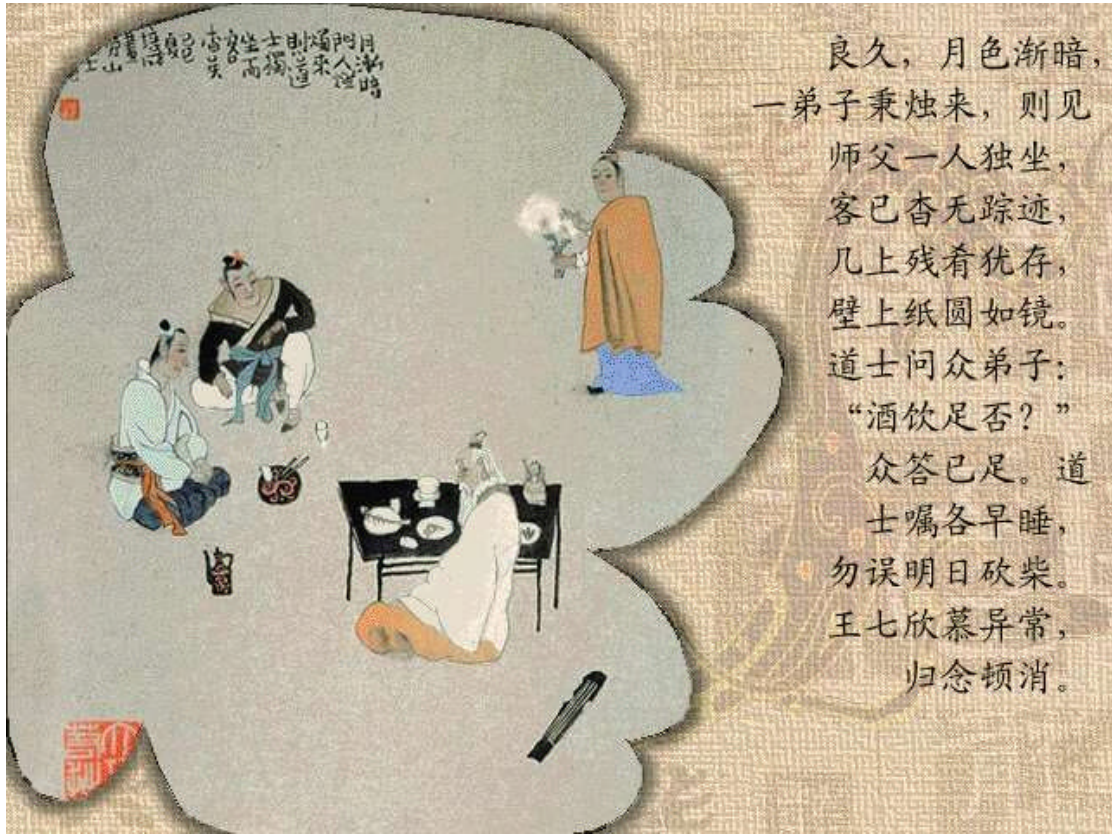 月漸暗
門人燃
燭來
則道
士獨
坐而
良久，月色渐暗，
一弟子秉烛来，则见
师父一人独坐，
客已杳无踪迹，
几上残肴犹存，
壁上纸圆如镜。
道士问众弟子：
“酒饮足否？”
众答已足。道
士嘱各早睡，
勿误明日砍柴。
王七欣慕异常，
归念顿消。